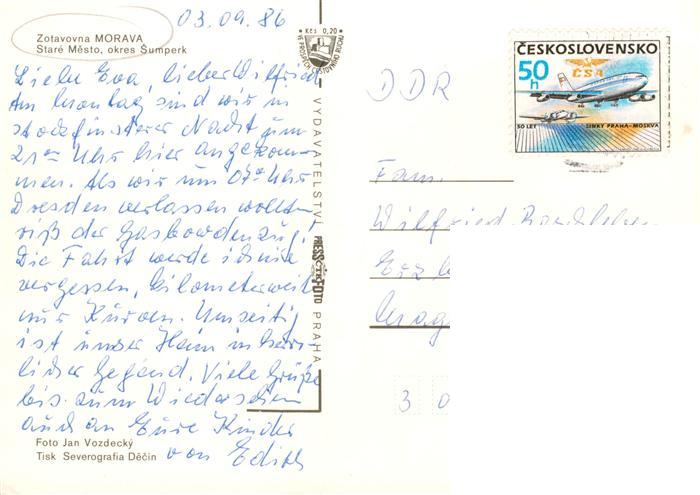 03.09.86
Zotavovna MORAVA
Staré Město, okres Šumperk
Liebe Eva, lieber Wilfried
Am Montag sind wir in
stockfinsterer Nacht um
21ºº Uhr hier angekom-
men. Als wir um 07ºº Uhr
Dresden verlassen wollten
riß der Gasbowdenzug!
Die Fahrt werde ich nie
vergessen, kilometerweit
nur Kurven. Umseitig
ist unser Heim in herr-
licher Gegend. Viele Grüße
bis zum Wiedersehen
auch an Eure Kinder
von Edith
Foto Jan Vozdecký
Tisk Severografia Děčín
Kčs 0,20
VE PROSPĚCH CESTOVNÍHO RUCHU
VYDAVATELSTVÍ PRESSFOTO PRAHA
ČTK
ČESKOSLOVENSKO
50 h
ČSA
50 LET LINKY PRAHA-MOSKVA
DDR
Fam.
Wilfried
3 0